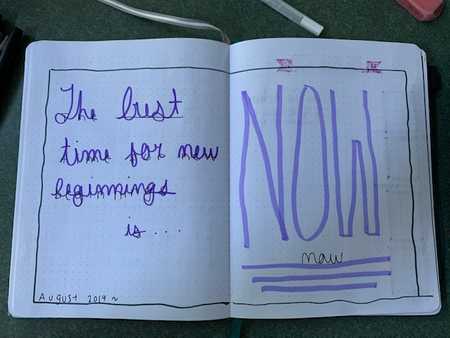 The best
time for new
beginnings
is...
AUGUST 2019 ~
NOW
now